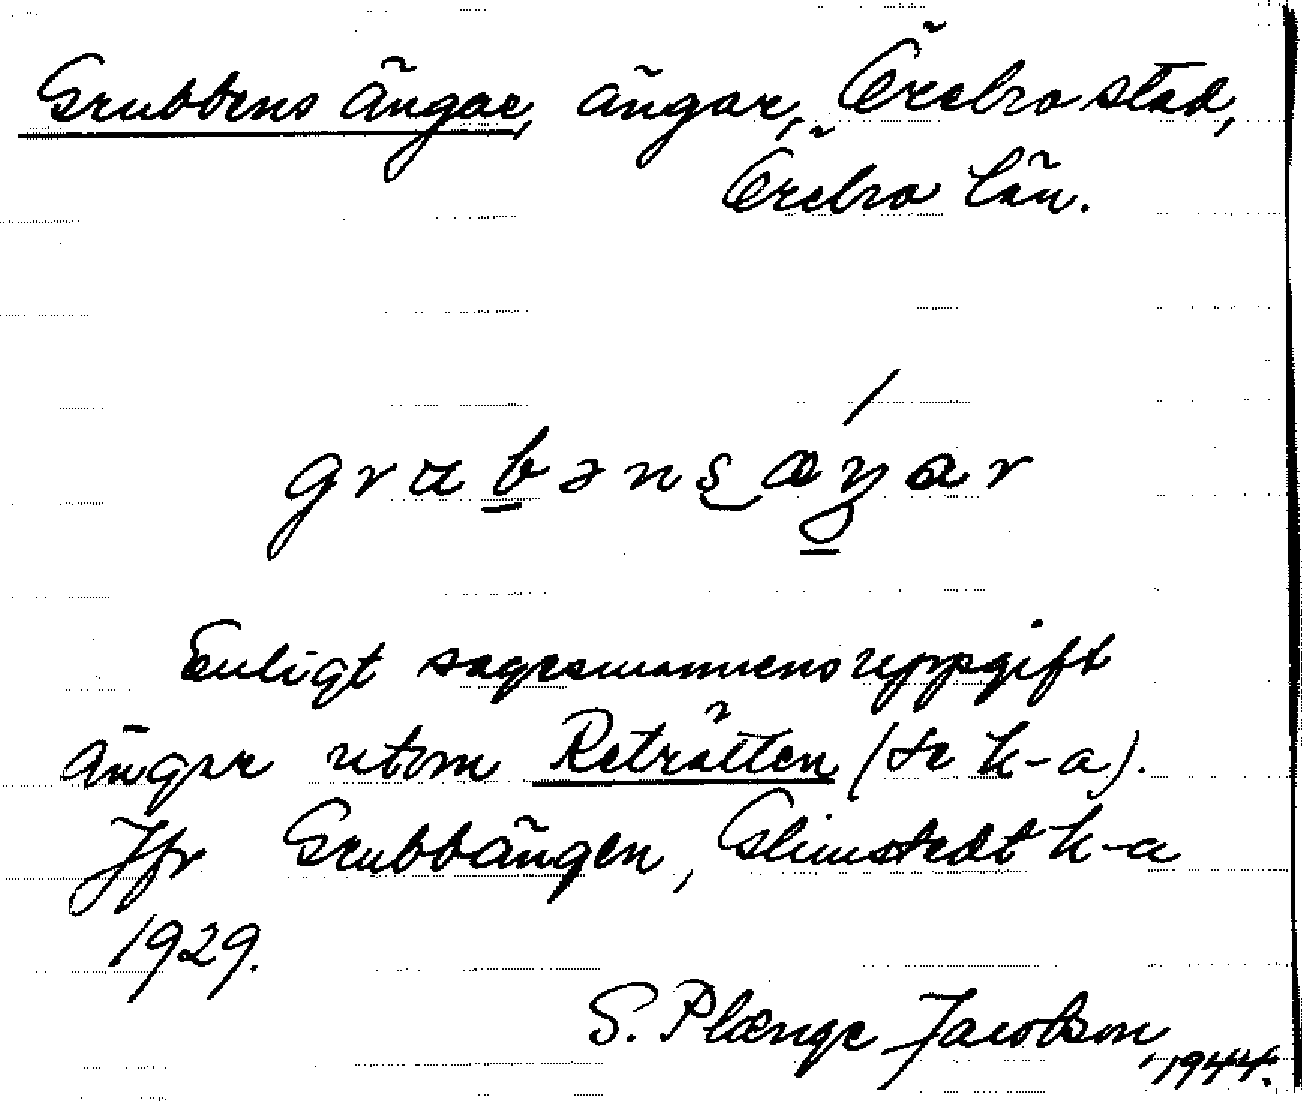 Grubbens Ängar, ängar, Örebro stad,
Örebro län.
grubənsæŋar
Enligt sagesmannens uppgift
ängar utom Reträtten (se k-a).
Jfr Grubbängen, Glimstedt k-a
1929.
S. Plænge Jacobson, 1944.